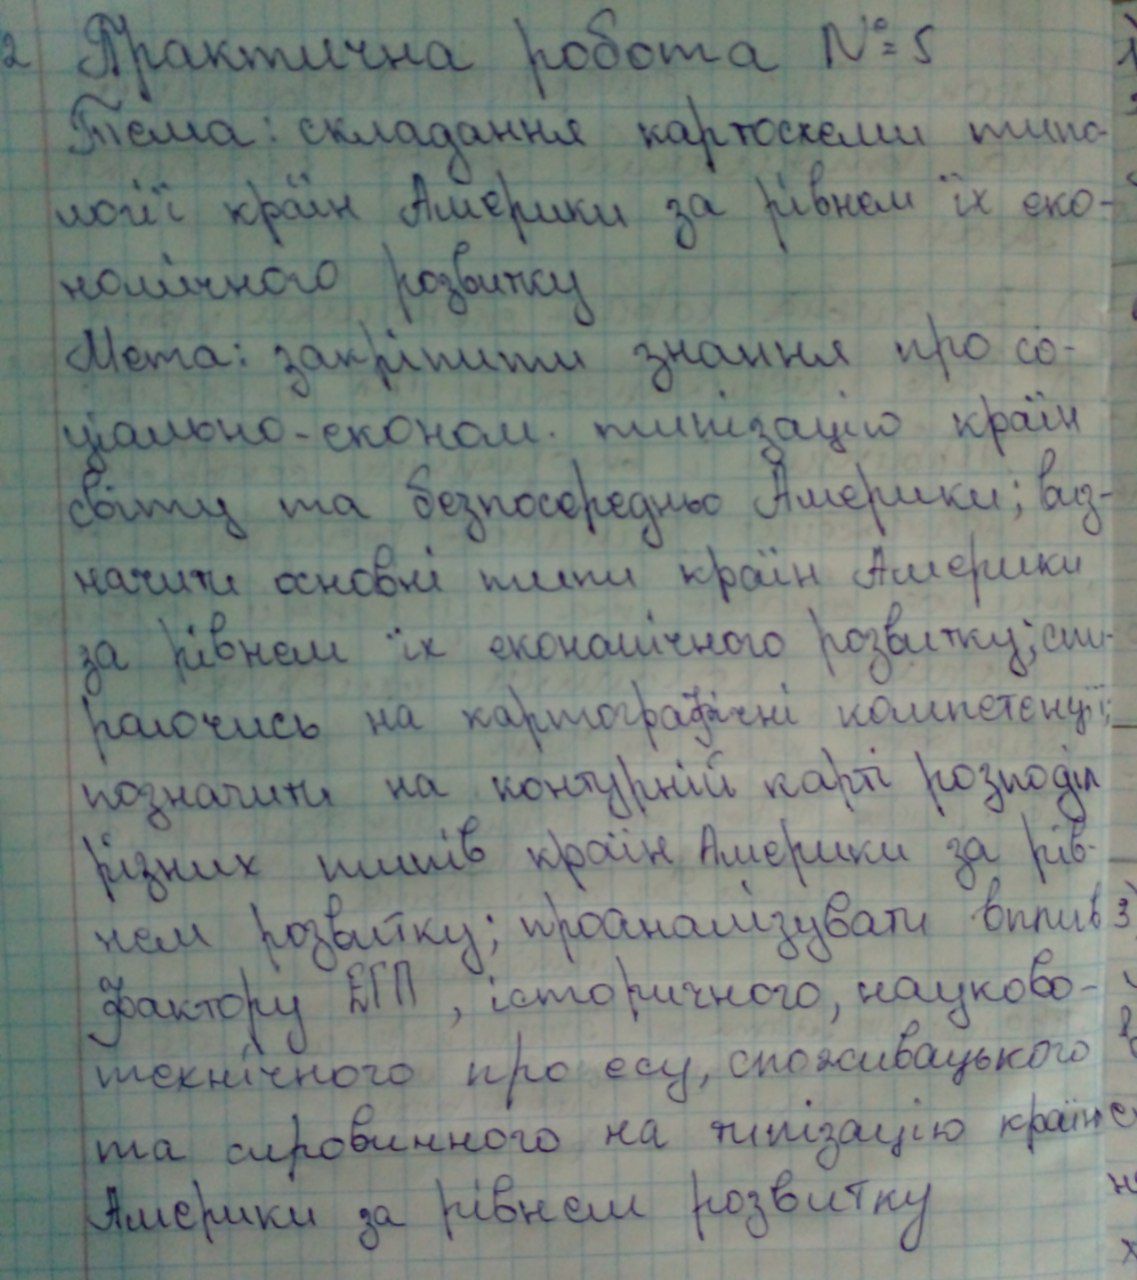 Практична робота №5
Тема: складання картосхеми типо-
логії країн Америки за рівнем їх еко-
номічного розвитку
Мета: закріпити знання про со-
ціально-економ. типізацію країн
світу та безпосередньо Америки; виз-
начити основні типи країн Америки
за рівнем їх економічного розвитку; спи-
раючись на картографічні компетенції,
позначити на контурній карті розподіл
різних типів країн Америки за рів-
нем розвитку; проаналізувати вплив
фактору ЕГП, історичного, науково-
технічного про есу, споживацького
та сировинного на типізацію країн
Америки за рівнем розвитку